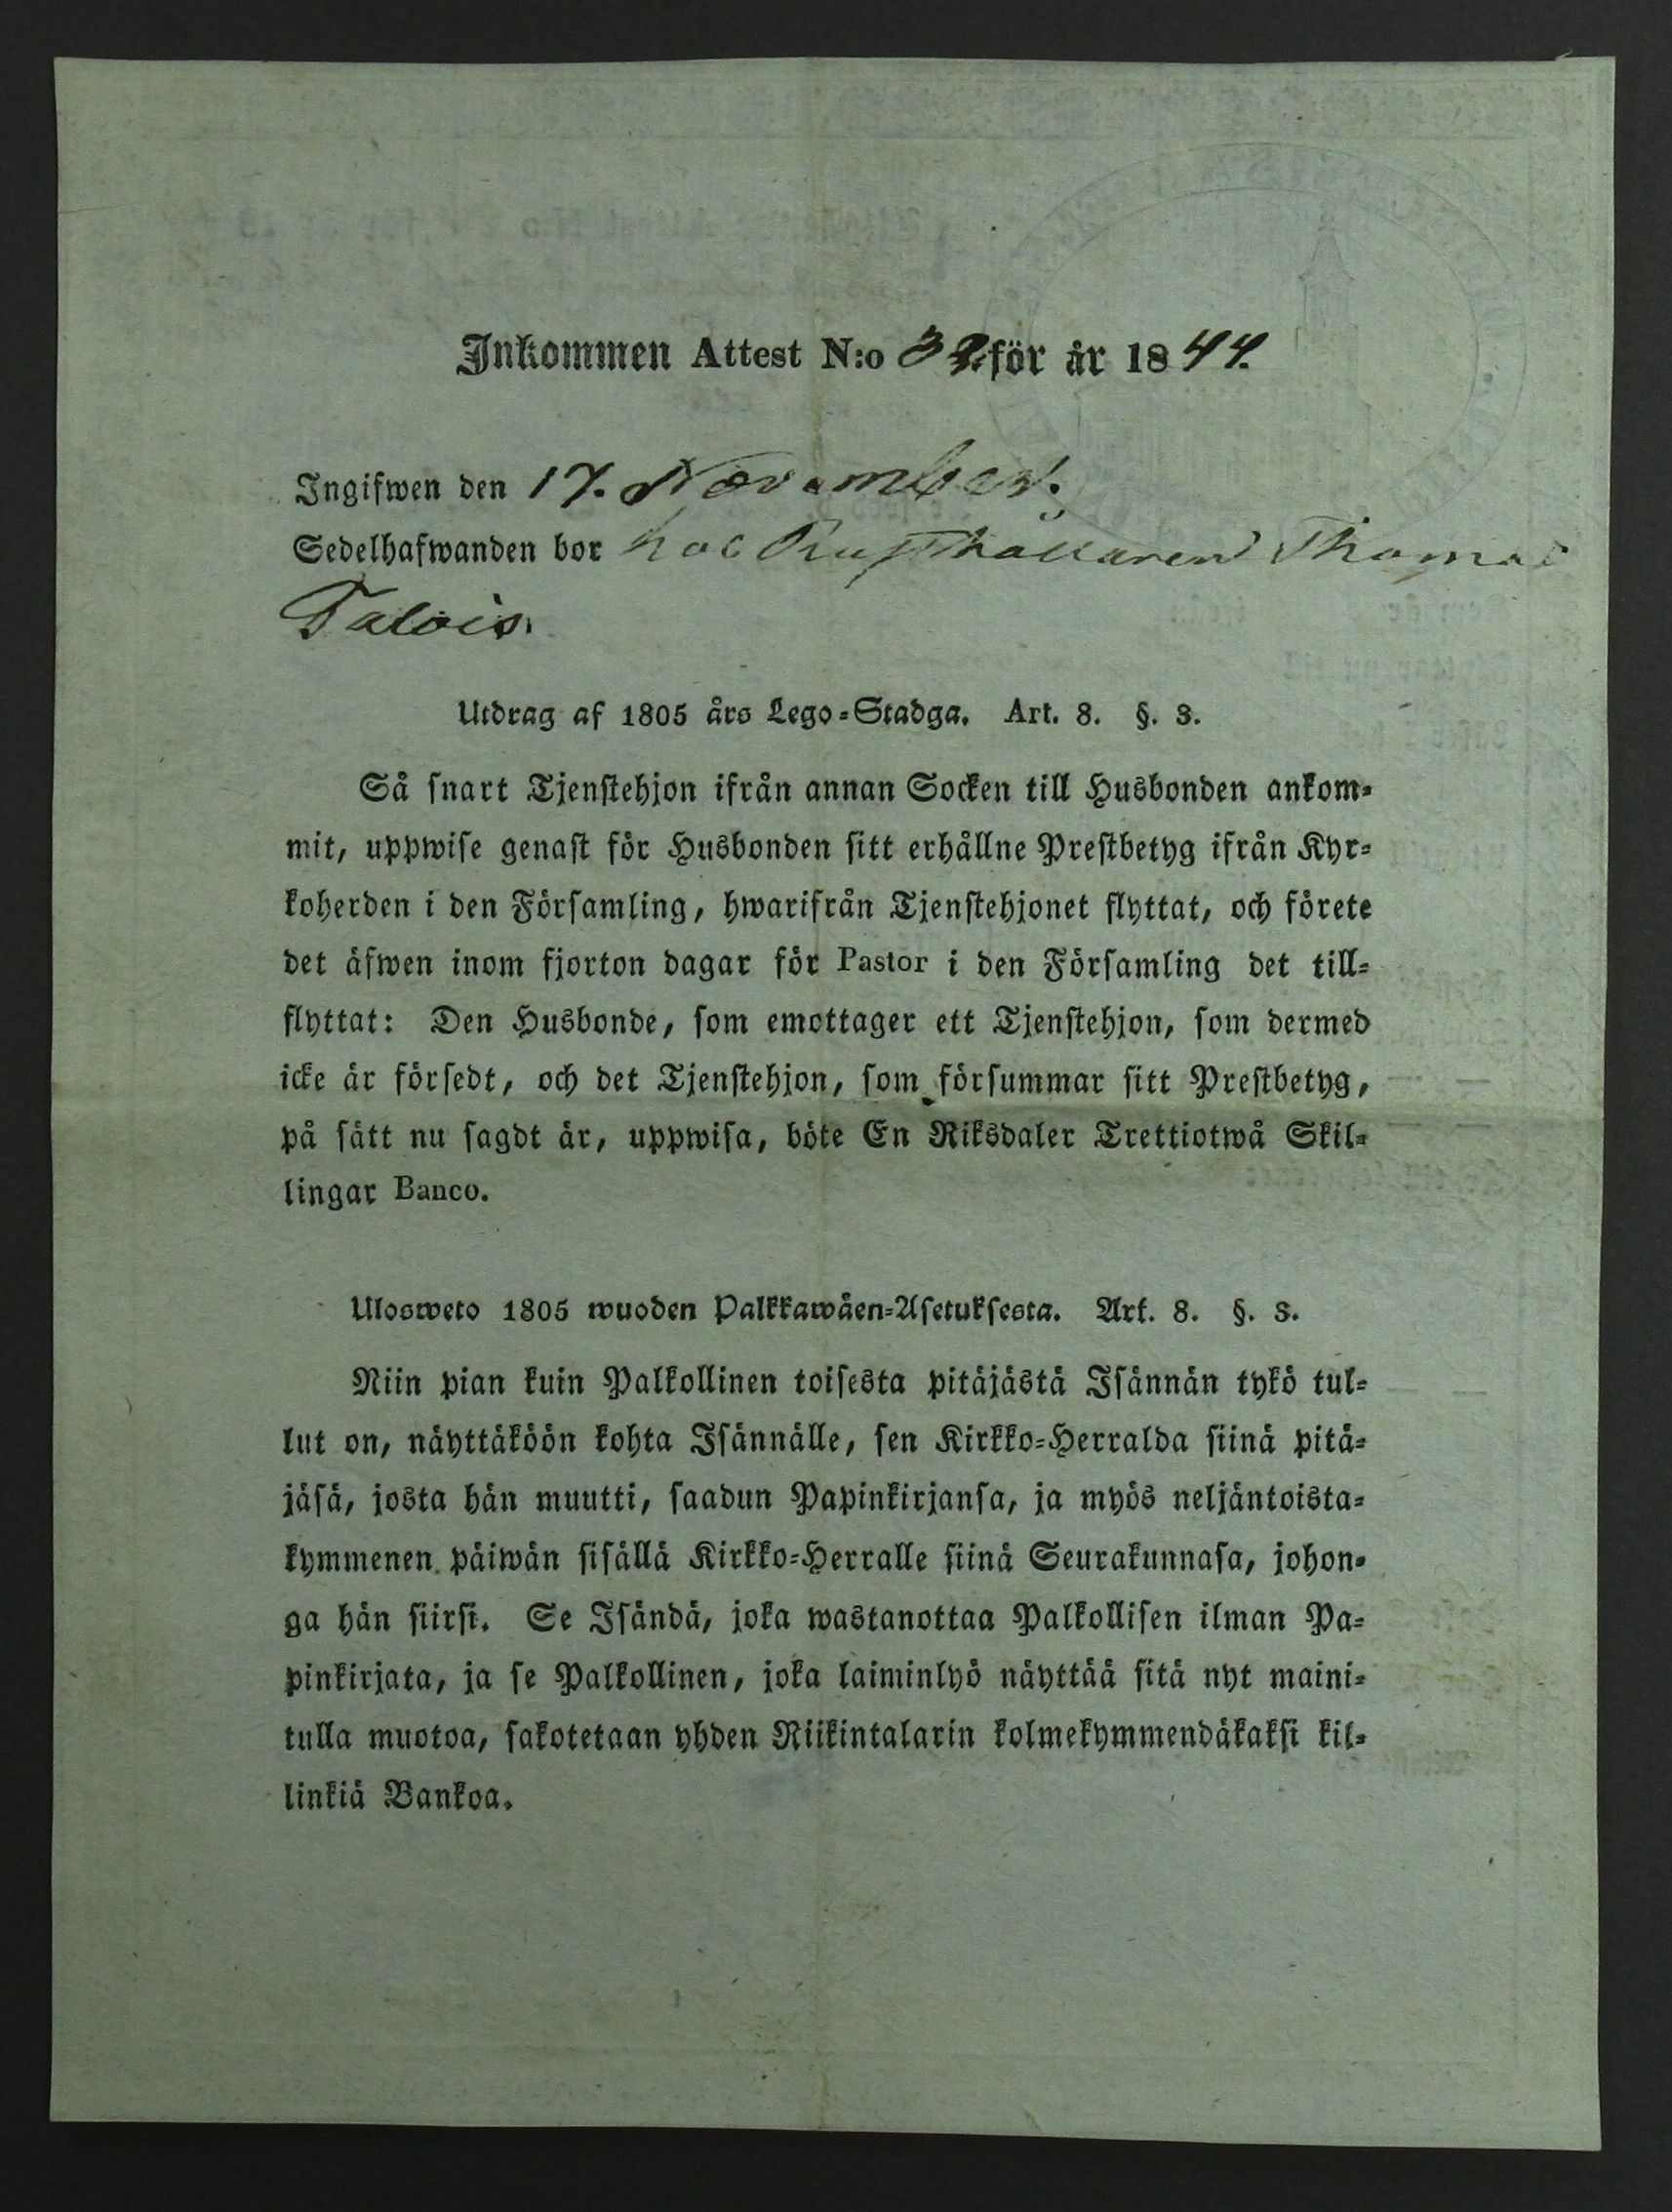 Inkommen Attest N:o 32. för år 1844.
Ingifwen den 17. November.
Sedelhafwanden bor hos Rusthållaren Thomas
Talois.
Utdrag af 1805 års Lego-Stadga. Art. 8. §. 3.
Så snart Tjenstehjon ifrån annan Socken till Husbonden ankom-
mit, uppwise genast för Husbonden sitt erhållne Prestbetyg ifrån Kyr-
koherden i den Församling, hwarifrån Tjenstehjonet flyttat, och förete
det äfwen inom fjorton dagar för Pastor i den Församling det till-
flyttat: Den Husbonde, som emottager ett Tjenstehjon, som dermed
icke är försedt, och det Tjenstehjon, som försummar sitt Prestbetyg,
på sätt nu sagdt är, uppwisa, böte En Riksdaler Trettiotwå Skil-
lingar Banco.
Ulosweto 1805 wuoden Palkkawäen-Asetuksesta. Art. 8. §. 3.
Niin pian kuin Palkollinen toisesta pitäjästä Isännän tykö tul-
lut on, näyttäköön kohta Isännälle, sen Kirkko-Herralda siinä pitä-
jäsä, josta hän muutti, saadun Papinkirjansa, ja myös neljäntoista-
kymmenen päiwän sisällä Kirkko-Herralle siinä Seurakunnasa, johon-
ga hän siirsi. Se Isändä, joka wastanottaa Palkollisen ilman Pa-
pinkirjata, ja se Palkollinen, joka laiminlyö näyttää sitä nyt maini-
tulla muotoa, sakotetaan yhden Riikintalarin kolmekymmendäkaksi kil-
linkiä Bankoa.